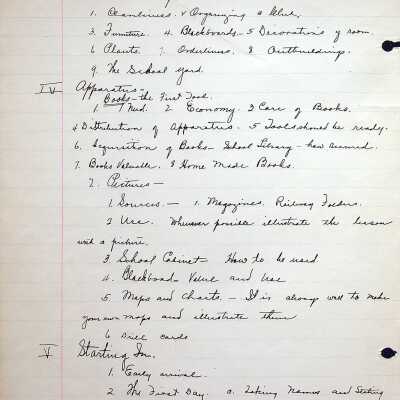 1. Cleanliness. & Organizing a Club.
3. Furniture. 4. Blackboards - 5 Decorations of room.
6 Plants 7. Orderliness. 8 Outbuildings.
9. The School yard.
IV Apparatus -
Books - the First Tool.
1. Need. 2 Economy. 3 Care of Books.
4 Distribution of Apparatus. 5 Tools should be ready.
6. Acquisition of Books - School Library - how secured.
7. Books Valuable. 8 Home Made Books.
2. Pictures -
1 Sources. - 1. Magazines, Railway Folders.
2 Use. Whenever possible illustrate the lesson
with a picture.
3 School Cabinet - How to be used
4. Blackboard - Value and Use
5. Maps and Charts. - It is always well to make
your own maps and illustrate them
6 Drill cards
V Starting In.
1. Early arrival.
2 The First Day. a. Taking Names and Seating